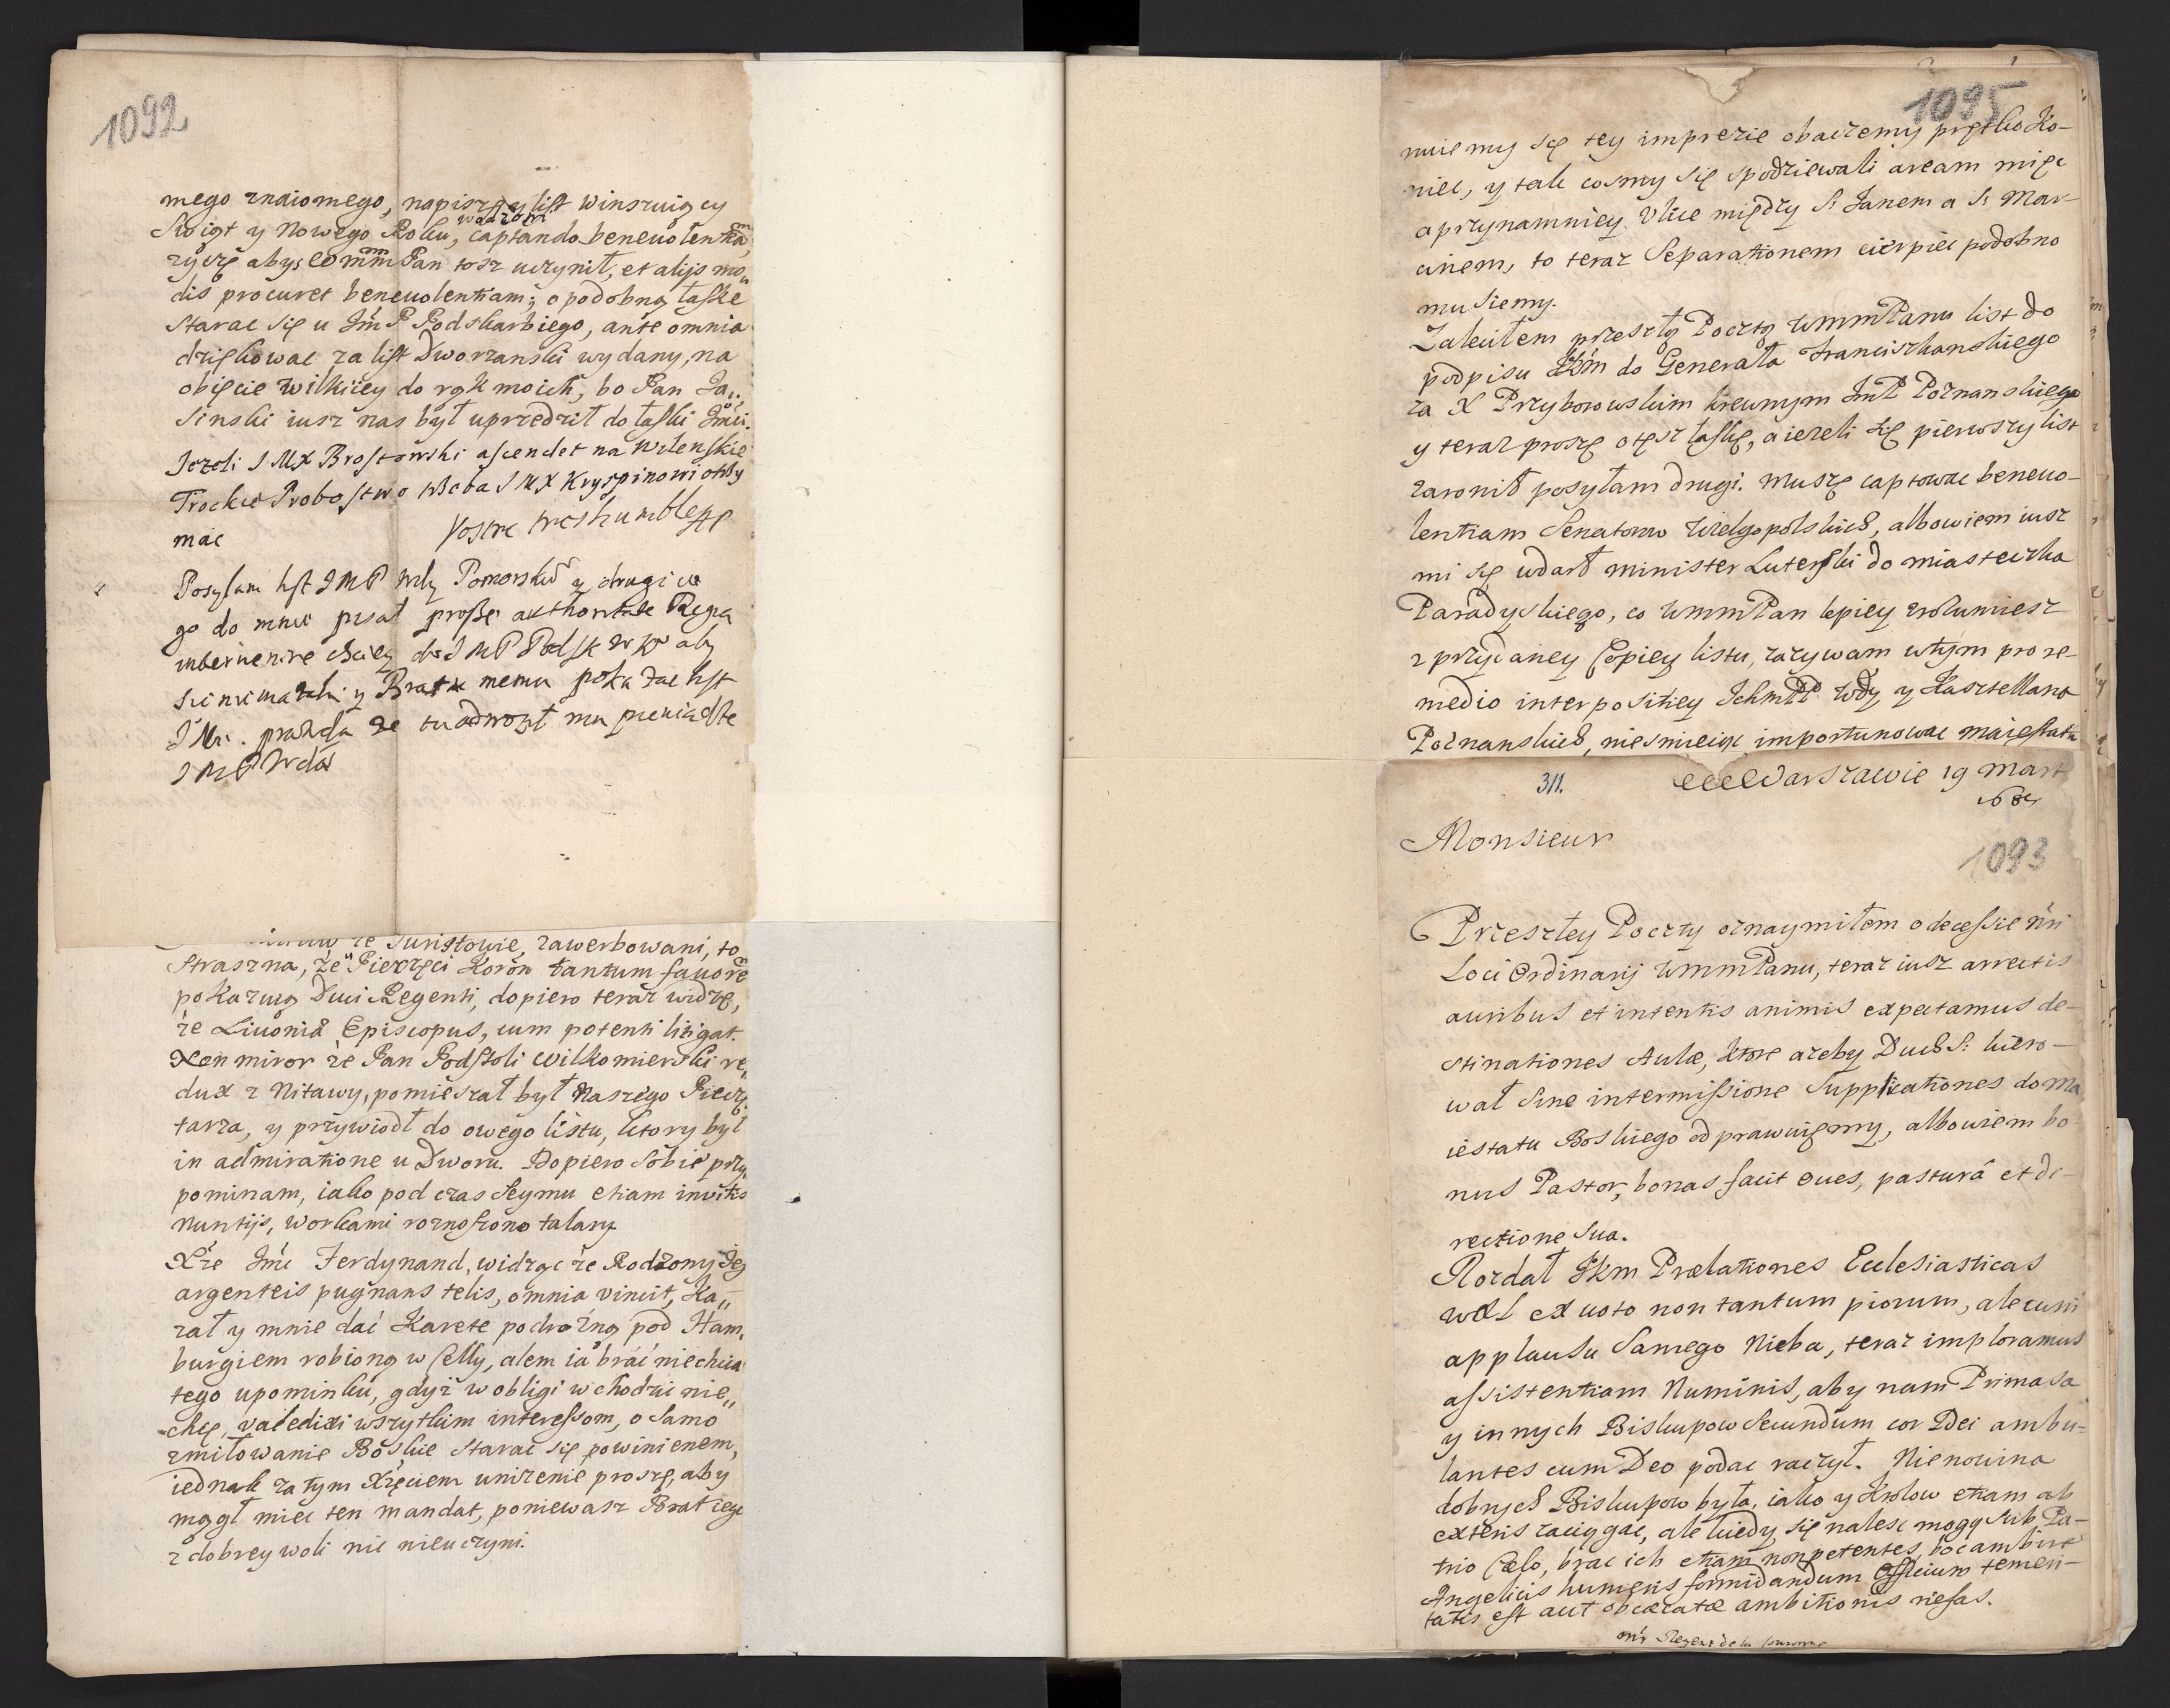 1092
mego znaiomego, napiszą y list winszuiący
wodzowi
Swiąt y Nowego Roku, captando beneuolentiã,
życzę abys WMM Pan tosz uczynił, et alijs mo„
dis procuret beneuolentiam; o podobną łaskę
starac się u Jm P Podskarbiego, ante omnia
dziękowac za list Dworzanski wydany, na
obięcie Wilkiiey do rąk moich, bo Pan Ja„
sinski iusz nas był uprzedził do łaski Jmci.
Jezeli J M X Brostowski ascendet na Wilenskie
Trockie Probostwo trzeba J M X Kryszpinowi
mac
Vostre tres humble
Posyłam list J M P Wdy Pomorski y drugi co
go do mnie pisał proszę authoritate Regia
interuenire chciey do J M P Podsk W X aby
y Bratu memu pokazac list
J Mci. prawda ze mu pieniądze
J M P Wda
ze Juristowie, zawerbowani, to
straszna, że Pieczęci Koron tantum fauorẽ
pokazuią Duci Regenti, dopiero teraz widzę,
że Liuoniæ Episcopus, cum potenti litigat.
Non miror że Pan Podstoli Wilkomierski re„
dux z Mitawy, pomieszał był Naszego Piecz„
tarza, y przywiodł do owego listu, ktory był
in admiratione u Dworu. Dopiero sobie przy„
pominam, iako pod czas Seymu etiam inuitis
Nuntijs, workami roznoszono talary.
Xże Jmć Ferdynand, widząc że Rodzony Jeg
argenteis pugnans telis, omnia vincit, Ka„
zał y mnie dać Karetę podrożną pod Ham„
burgiem robioną w Celly, alem ia brać niechciał
tego upominku, gdyż w obligi wchodzic nie„
chcę, valedixi wszytkim interessom, o samo
zmiłowanie Boskie starac się powinienem,
iednak za tym Xzęciem unizenie proszę, aby
mogł miec ten mandat, poniewasz Brat iego
z dobrey woli nic nieuczyni.
1095
miemy się tey imprezie obaczemy prętko Ko–
niec, y tak cosmy się spodziewali arcam miec
a przynamniey Ulice między S. Janem a S. Mar–
cinem, to teraz Separationem cierpiec podobno
musiemy.
Zaleciłem przeszłą Pocztą WMMPanu list do
podpisu JKm do Generała Franciszkanskiego
za X Przyborowskim krewnym JmP Poznanskiego
y teraz proszę o tęsz łaskę, a iezeli się pierwszy list
zaronił posyłam drugi. Muszę captowac beneuo–
lentiam Senatorow Wielgopolskich, albowiem iusz
mi się udarł minister Luterski do miasteczka
Paradyskiego, co WMMPan lepiey zrozumiesz
z przydaney Copiey listu, zazywam wtym pro re–
medio interpositiey Ichm PP Wdy y Kasztellana
Poznanskich, niesmieiąc importunowac maiestatu
311.
Warszawie 19 Mart
Monsieur
1093
Przeszłey Poczty oznaymiłem o decessie nri
Loci Ordinarij WMMPanu, teraz iusz arrectis
auribus et intentis animis expectamus de–
stinationes Aulæ, ktore azeby Duch S: kiero–
wał sine intermissione supplicationes do ma
iestatu Boskiego odprawuięmy, albowiem bo
nus Pastor, bonas facit oues, pasturâ et di–
rectione sua.
Rozdał JKm Prælationes Ecclesiasticas
wxl ex uoto non tantum piorum, ale cum
applausu samego Nieba, teraz imploramus
assistentiam Numinis, aby nam Primasa
y innych Biskupow secundum cor Dei ambu–
lantes cum Deo podac raczył. Nienowina
dobrych Biskupow była, iako y Krolow etiam ab
exteris zaciągac, ale kiedy się nalesc mogą sub Pa–
trio Cælo, brac ich etiam non petentes, hoc ambire
Angelicis humeris formidandum Officium temeri–
tatis est aut obcæcatæ ambitionis nefas.